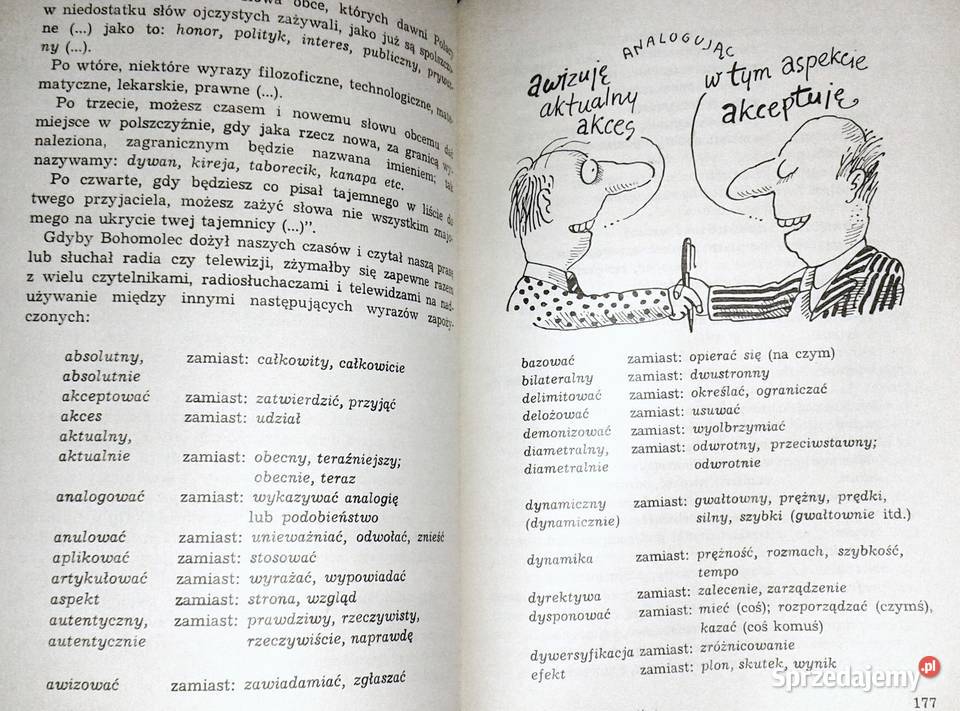 słowa obce, których dawni Polacy
w niedostatku słów ojczystych zażywali, jako już są spolszczo-
ne (...) jako to: honor, polityk, interes, publiczny, prywat-
ny (...).
Po wtóre, niektóre wyrazy filozoficzne, technologiczne, mate-
matyczne, lekarskie, prawne (...).
Po trzecie, możesz czasem i nowemu słowu obcemu dać
miejsce w polszczyźnie, gdy jaka rzecz nowa, za granicą wy-
naleziona, zagranicznym będzie nazwana imieniem; tak
nazywamy: dywan, kireja, taborecik, kanapa etc.
Po czwarte, gdy będziesz co pisał tajemnego w liście do
twego przyjaciela, możesz zażyć słowa nie wszystkim znajo-
mego na ukrycie twej tajemnicy (...)".
Gdyby Bohomolec dożył naszych czasów i czytał naszą prasę
lub słuchał radia czy telewizji, zżymałby się zapewne razem
z wielu czytelnikami, radiosłuchaczami i telewidzami na nad-
używanie między innymi następujących wyrazów zapoży-
czonych:
absolutny, zamiast: całkowity, całkowicie
absolutnie
akceptować zamiast: zatwierdzić, przyjąć
akces zamiast: udział
aktualny,
aktualnie zamiast: obecny, teraźniejszy;
obecnie, teraz
analogować zamiast: wykazywać analogię
lub podobieństwo
anulować zamiast: unieważniać, odwołać, znieść
aplikować zamiast: stosować
artykułować zamiast: wyrażać, wypowiadać
aspekt zamiast: strona, wzgląd
autentyczny, zamiast: prawdziwy, rzeczywisty,
autentycznie rzeczywiście, naprawdę
awizować zamiast: zawiadamiać, zgłaszać
ANALOGUJĄC
awizuję
aktualny
akces
w tym aspekcie
akceptuję
bazować zamiast: opierać się (na czym)
bilateralny zamiast: dwustronny
delimitować zamiast: określać, ograniczać
delożować zamiast: usuwać
demonizować zamiast: wyolbrzymiać
diametralny, zamiast: odwrotny, przeciwstawny;
diametralnie odwrotnie
dynamiczny zamiast: gwałtowny, prężny, prędki,
(dynamicznie) silny, szybki (gwałtownie itd.)
dynamika zamiast: prężność, rozmach, szybkość,
tempo
dyrektywa zamiast: zalecenie, zarządzenie
dysponować zamiast: mieć (coś); rozporządzać (czymś),
kazać (coś komuś)
dywersyfikacja zamiast: zróżnicowanie
efekt zamiast: plon, skutek, wynik
177
Sprzedajemy.pl